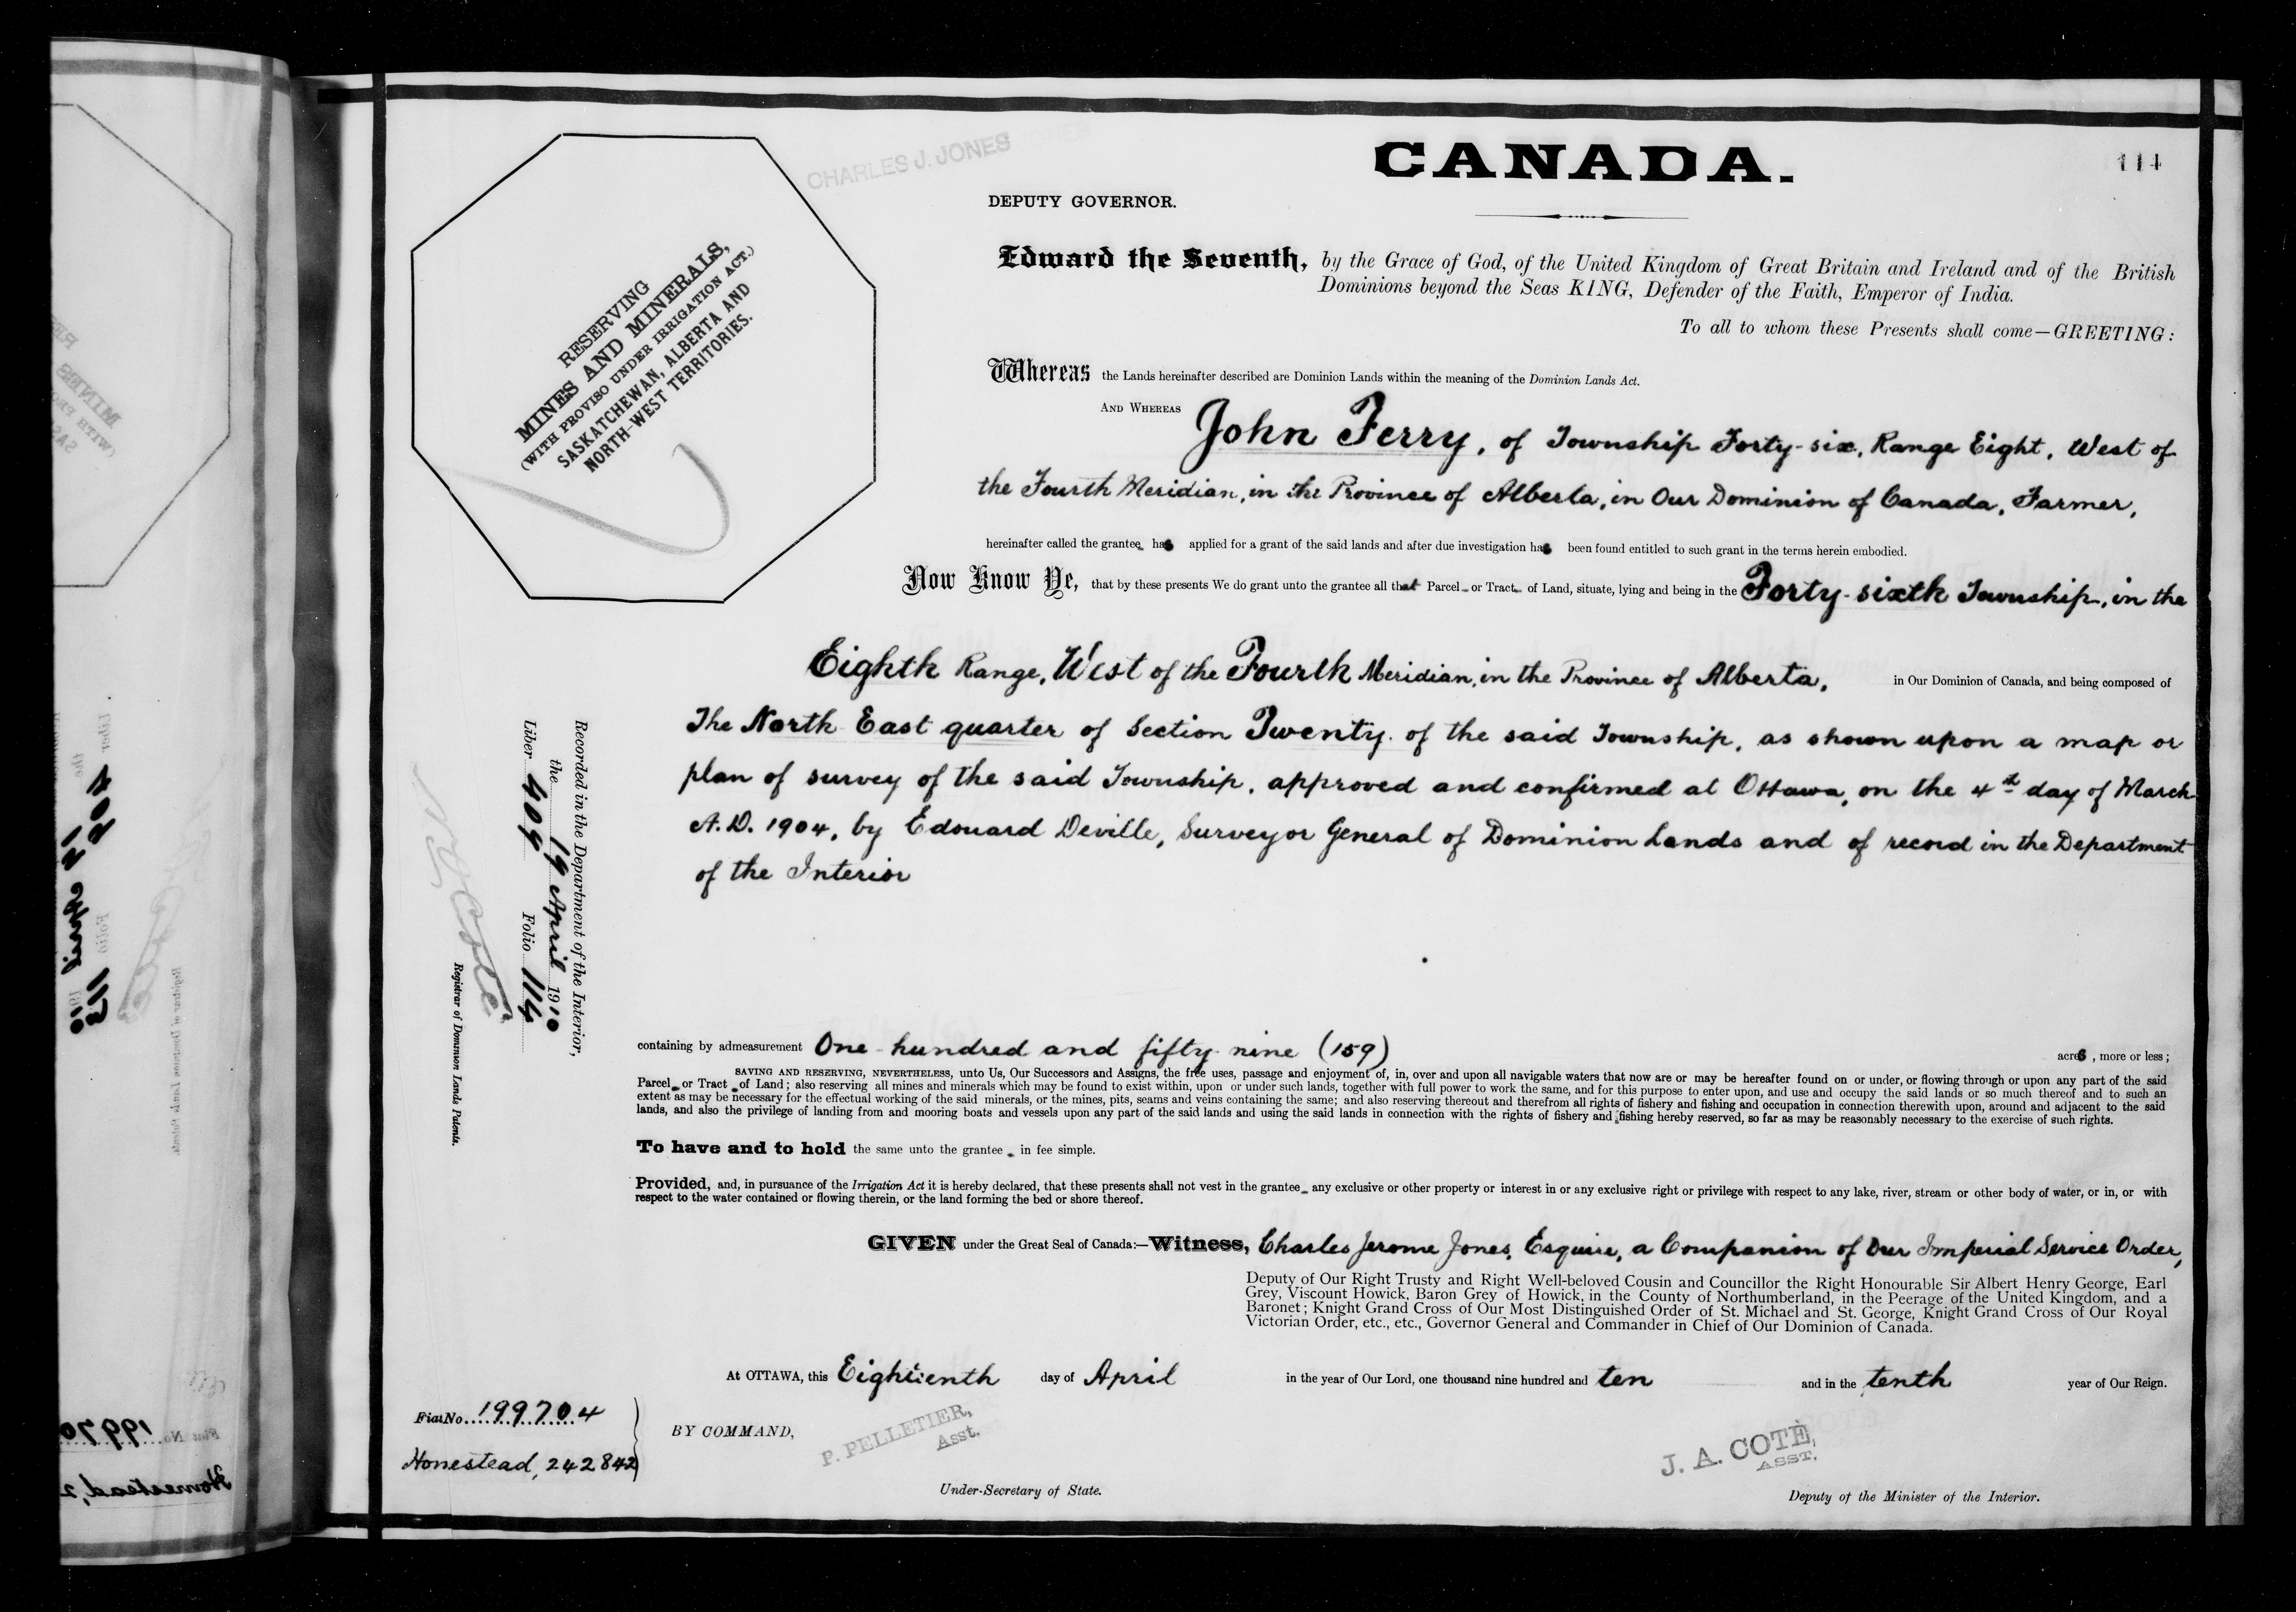 CHARLES J. JONES
CANADA.
114
DEPUTY GOVERNOR.
RESERVING
MINES AND MINERALS,
(WITH PROVISO UNDER IRRIGATION ACT.)
SASKATCHEWAN, ALBERTA AND
NORTH-WEST TERRITORIES.
Edward the Seventh, by the Grace of God, of the United Kingdom of Great Britain and Ireland and of the British
Dominions beyond the Seas KING, Defender of the Faith, Emperor of India.
To all to whom these Presents shall come—GREETING:
Whereas the Lands hereinafter described are Dominion Lands within the meaning of the Dominion Lands Act.
AND WHEREAS John Ferry, of Township Forty-six, Range Eight, West of
the Fourth Meridian, in the Province of Alberta, in Our Dominion of Canada, Farmer,
hereinafter called the grantee has applied for a grant of the said lands and after due investigation has been found entitled to such grant in the terms herein embodied.
Now Know Ye, that by these presents We do grant unto the grantee all that Parcel or Tract of Land, situate, lying and being in the Forty-sixth Township, in the
Eighth Range, West of the Fourth Meridian, in the Province of Alberta, in Our Dominion of Canada, and being composed of
The North East quarter of Section Twenty of the said Township, as shown upon a map or
plan of survey of the said Township, approved and confirmed at Ottawa, on the 4th day of March
A.D. 1904, by Edouard Deville, Surveyor General of Dominion Lands and of record in the Department
of the Interior
Recorded in the Department of the Interior,
the 19 April 1910
Liber 409 Folio 114
N O Coté
Registrar of Dominion Lands Patents.
containing by admeasurement One hundred and fifty nine (159) acres, more or less;
SAVING AND RESERVING, NEVERTHELESS, unto Us, Our Successors and Assigns, the free uses, passage and enjoyment of, in, over and upon all navigable waters that now are or may be hereafter found on or under, or flowing through or upon any part of the said
Parcel or Tract of Land; also reserving all mines and minerals which may be found to exist within, upon or under such lands, together with full power to work the same, and for this purpose to enter upon, and use and occupy the said lands or so much thereof and to such an
extent as may be necessary for the effectual working of the said minerals, or the mines, pits, seams and veins containing the same; and also reserving thereout and therefrom all rights of fishery and fishing and occupation in connection therewith upon, around and adjacent to the said
lands, and also the privilege of landing from and mooring boats and vessels upon any part of the said lands and using the said lands in connection with the rights of fishery and fishing hereby reserved, so far as may be reasonably necessary to the exercise of such rights.
To have and to hold the same unto the grantee in fee simple.
Provided, and, in pursuance of the Irrigation Act it is hereby declared, that these presents shall not vest in the grantee any exclusive or other property or interest in or any exclusive right or privilege with respect to any lake, river, stream or other body of water, or in, or with
respect to the water contained or flowing therein, or the land forming the bed or shore thereof.
GIVEN under the Great Seal of Canada:—Witness, Charles Jerome Jones, Esquire, a Companion of Our Imperial Service Order,
Deputy of Our Right Trusty and Right Well-beloved Cousin and Councillor the Right Honourable Sir Albert Henry George, Earl
Grey, Viscount Howick, Baron Grey of Howick, in the County of Northumberland, in the Peerage of the United Kingdom, and a
Baronet; Knight Grand Cross of Our Most Distinguished Order of St. Michael and St. George, Knight Grand Cross of Our Royal
Victorian Order, etc., etc., Governor General and Commander in Chief of Our Dominion of Canada.
At OTTAWA, this Eighteenth day of April in the year of Our Lord, one thousand nine hundred and ten and in the tenth year of Our Reign.
Fiat No. 199704
Homestead, 242842
BY COMMAND,
P. PELLETIER,
Asst.
Under-Secretary of State.
J. A. COTÉ,
ASST.
Deputy of the Minister of the Interior.